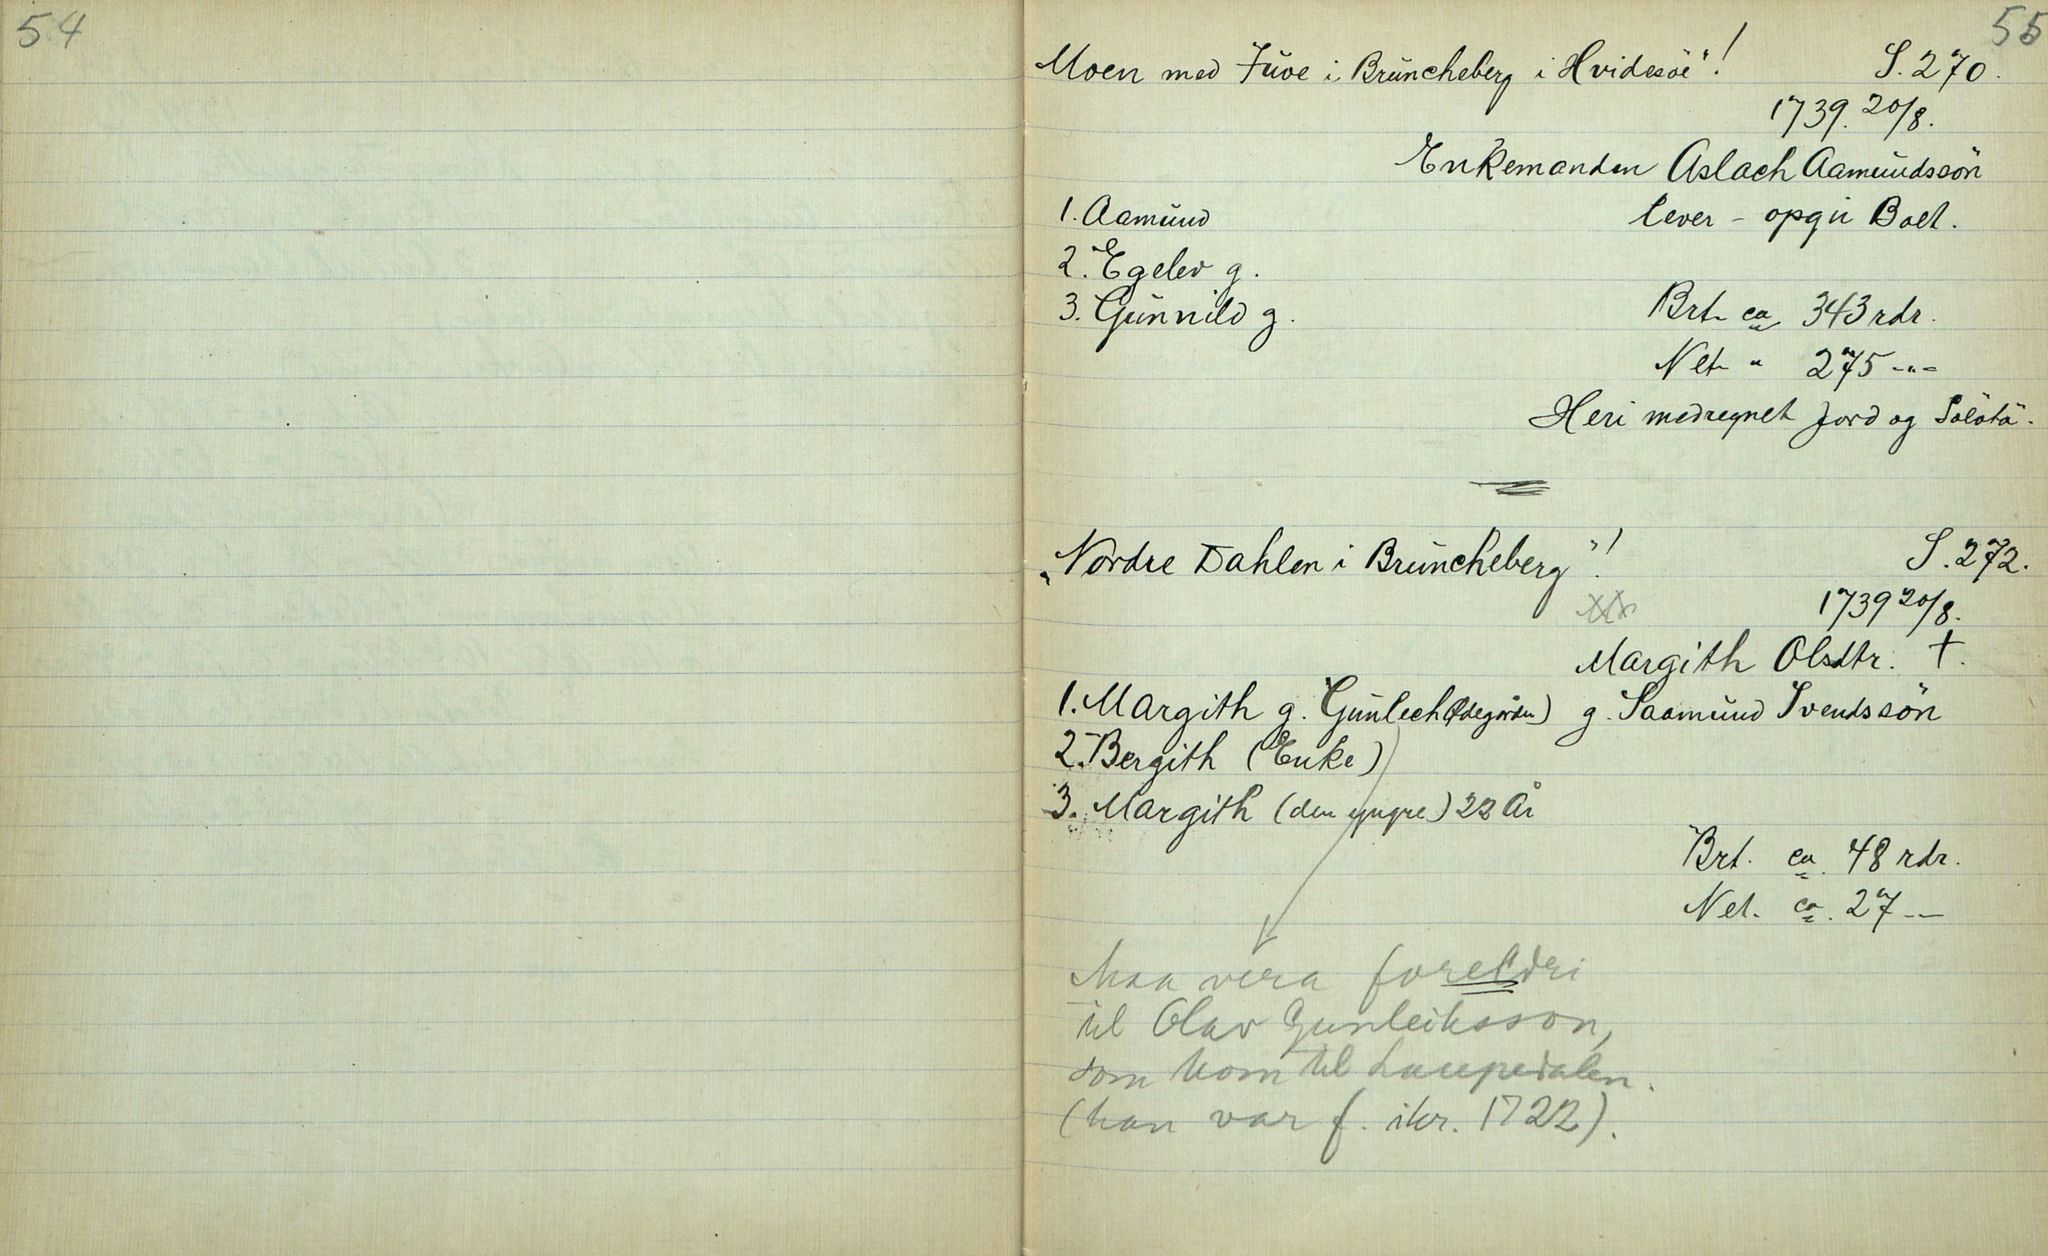 54
55
Moen med Juve i Bruncheberg i Hvidesöe"! S. 270.
1739. 20/8.
Enkemanden Aslach Aamundssön
1. Aamund lever - opgir Boet.
2. Egelev g.
3. Gunnild g. Brt ca 343 rdr.
Net " 275 -"-
Heri medregnet Jord og
"Nordre Dahlen i Bruncheberg"! S. 272.
1739 20/8.
Margith Olsdtr. †.
1. Margith g. Gunlech (Ödegården) g. Saamund Svendssön
2. Bergith (Enke)
3. Margith (den yngre) 22 År
Brt. ca. 48 rdr.
Net. ca. 27 --
Maa vera foreldri
til Olav Gunleiksson,
som kom til Laupedalen.
(han var f. ikr. 1722).